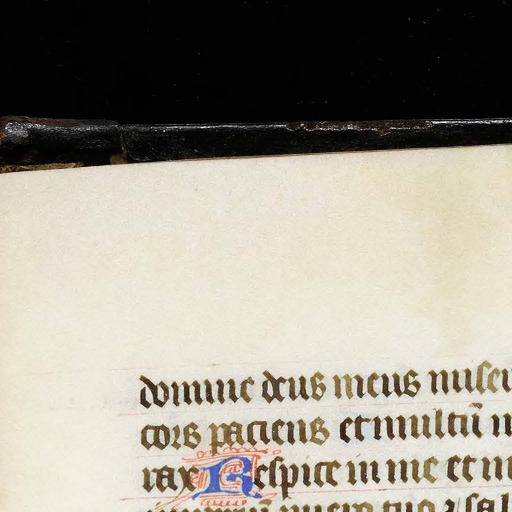 domine deus meus miser
cors paciens et multū m
rax Respice in me et m
puero tuo ⁊ sal